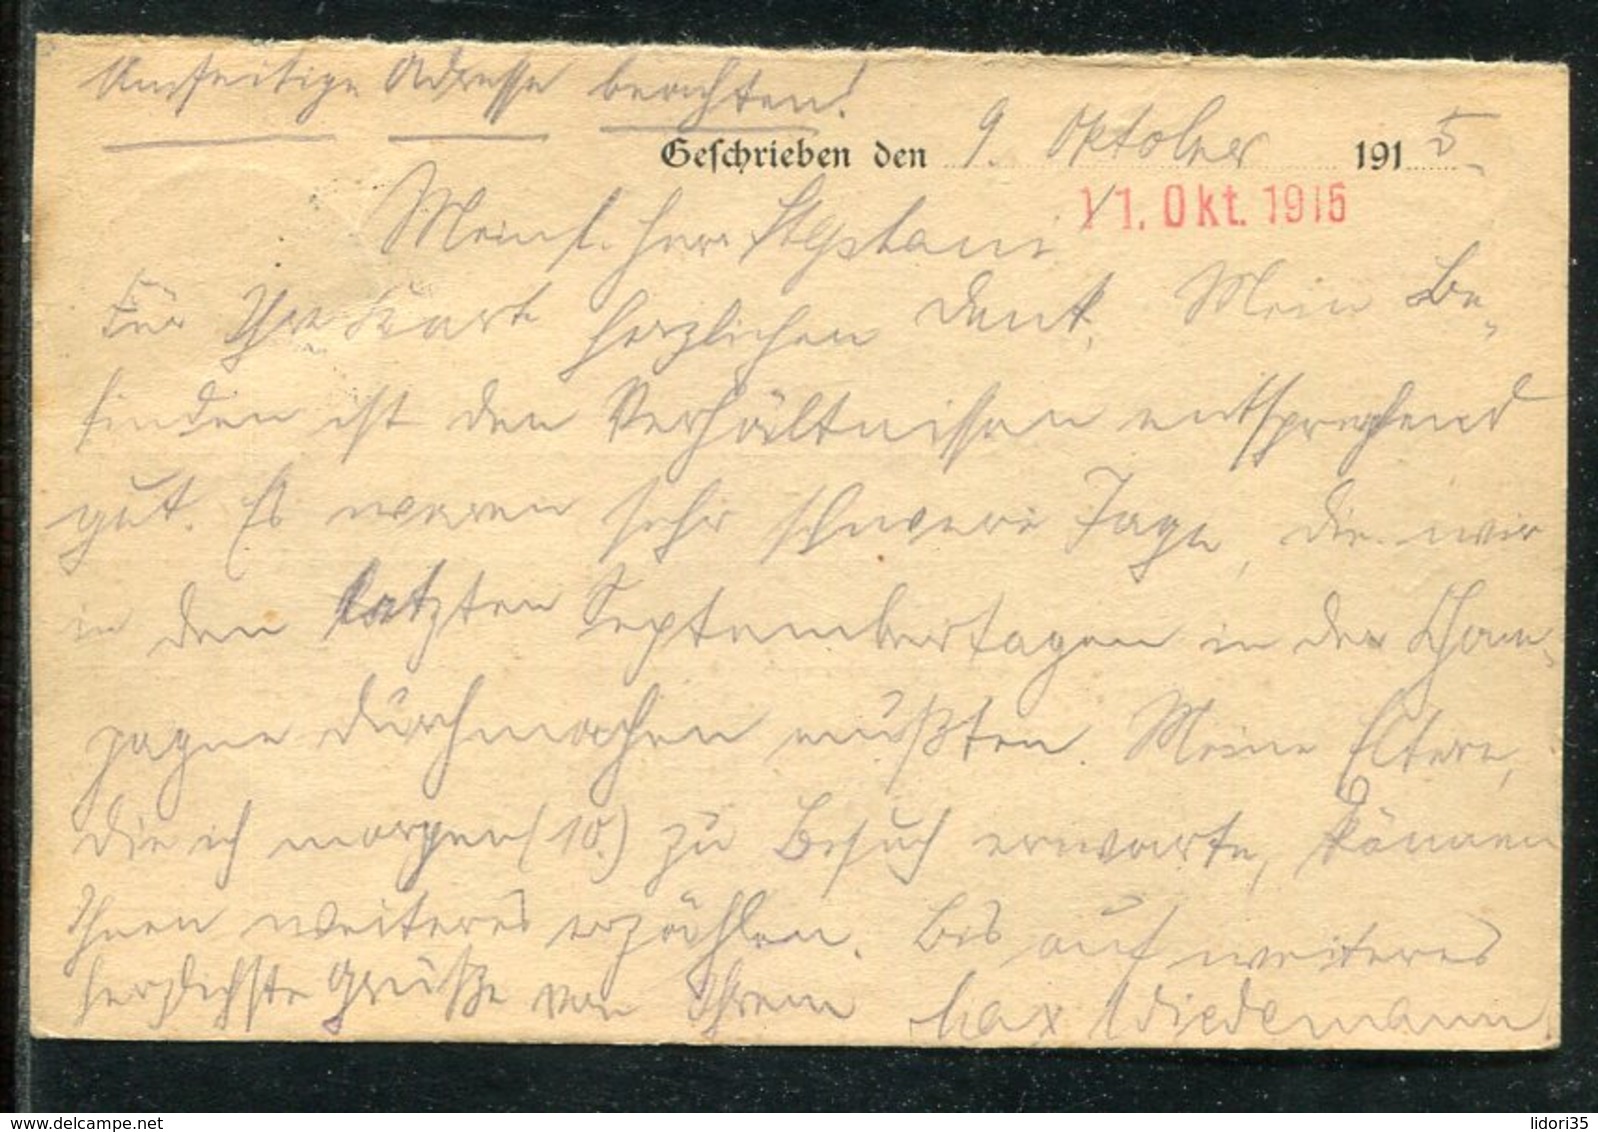 Umseitige Adresse beachten!
Geschrieben den 9. Oktober 1915
11. Okt. 1915
Mein l. Herr Stephani
Für Ihre Karte herzlichen Dank. Mein Be-
finden ist den Verhältnissen entsprechend
gut. Es waren sehr schwere Tage, die wir
in den letzten Septembertagen in der Cham-
pagne durchmachen mußten. Meine Eltern,
die ich morgen (10.) zu Besuch erwarte, können
Ihnen weiteres erzählen. Bis auf weiteres
herzlichste Grüße von Ihrem Max Wiedemann
delcampe.net
lidori35